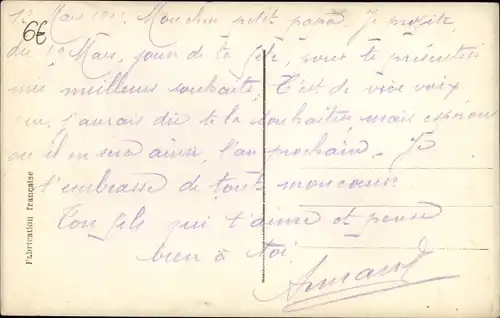 6€
12 Mars Mon cher petit papa. Je profite
du 12 Mars, jour de ta fête, pour te présenter
mes meilleurs souhaits, C'est de vive voix
que j'aurais dû te la souhaiter, mais espérons
qu'il en sera ainsi, l'an prochain. Je
t'embrasse de tout mon cœur.
Ton fils qui t'aime et pense
bien à toi
Armand
Fabrication française